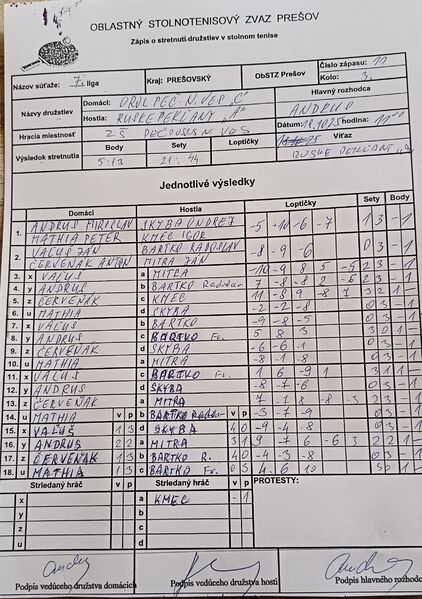 OBLASTNÝ STOLNOTENISOVÝ ZVÄZ PREŠOV
Zápis o stretnutí družstiev v stolnom tenise
Názov súťaže: 7. liga Kraj: PREŠOVSKÝ ObSTZ Prešov Číslo zápasu: Kolo: 3.
Názvy družstiev Domáci: N. VES "C" Hlavný rozhodca
Hostia: RUSKÉ PEKĽANY "A" ANDRUS
Hracia miestnosť ZŠ Dátum: hodina:
Výsledok stretnutia Body Sety Loptičky Víťaz
5:13 21:44
Jednotlivé výsledky
Domáci Hostia Loptičky Sety Body
1. ANDRUS MIROSLAV SKYBA ONDREJ -5 +10 -6 -7 1 3 - 1
MATHIA PETER KMEC IGOR
2. VAĽUŠ JÁN BARTKO RADOSLAV -8 -9 -6 0 3 - 1
ČERVENÁK ANTON MITRA JÁN
3. x VAĽUŠ a MITRA -10 -9 8 5 -5 2 3 - 1
4. y ANDRUS b BARTKO Radoslav 7 -8 -8 2 -6 2 3 - 1
5. z ČERVENÁK c KMEC 11 -8 9 -8 7 3 2 1 -
6. u MATHIA d SKYBA -2 -2 -8 0 3 - 1
7. x VAĽUŠ b BARTKO -9 -8 -5 0 3 - 1
8. y ANDRUS c BARTKO Fr. 5 8 3 3 0 1 -
9. z ČERVENÁK d SKYBA -6 -6 -1 0 3 - 1
10. u MATHIA a MITRA -8 -1 -8 0 3 - 1
11. x VAĽUŠ c BARTKO Fr. 1 6 -9 1 3 1 1 -
12. y ANDRUS d SKYBA -8 -7 -6 0 3 - 1
13. z ČERVENÁK a MITRA 7 -8 -8 -3
14. u MATHIA v p b BARTKO v p -3 -7 -9 0 3 - 1
15. x VAĽUŠ 1 3 d SKYBA 4 0 -9 -4 -8 0 3 - 1
16. y ANDRUS 2 2 a MITRA 3 1 9 -7 6 -6
17. z ČERVENÁK 1 3 b BARTKO R. 4 0 -4 -3 -8 0 3 - 1
18. u MATHIA 1 3 c BARTKO Fr. 0 3 4 6 10 3 0 1 -
Striedaný hráč v p Striedaný hráč v p PROTESTY:
x a KMEC - 1
y b
z c
u d
Podpis vedúceho družstva domácich Podpis vedúceho družstva hostí Podpis hlavného rozhodcu